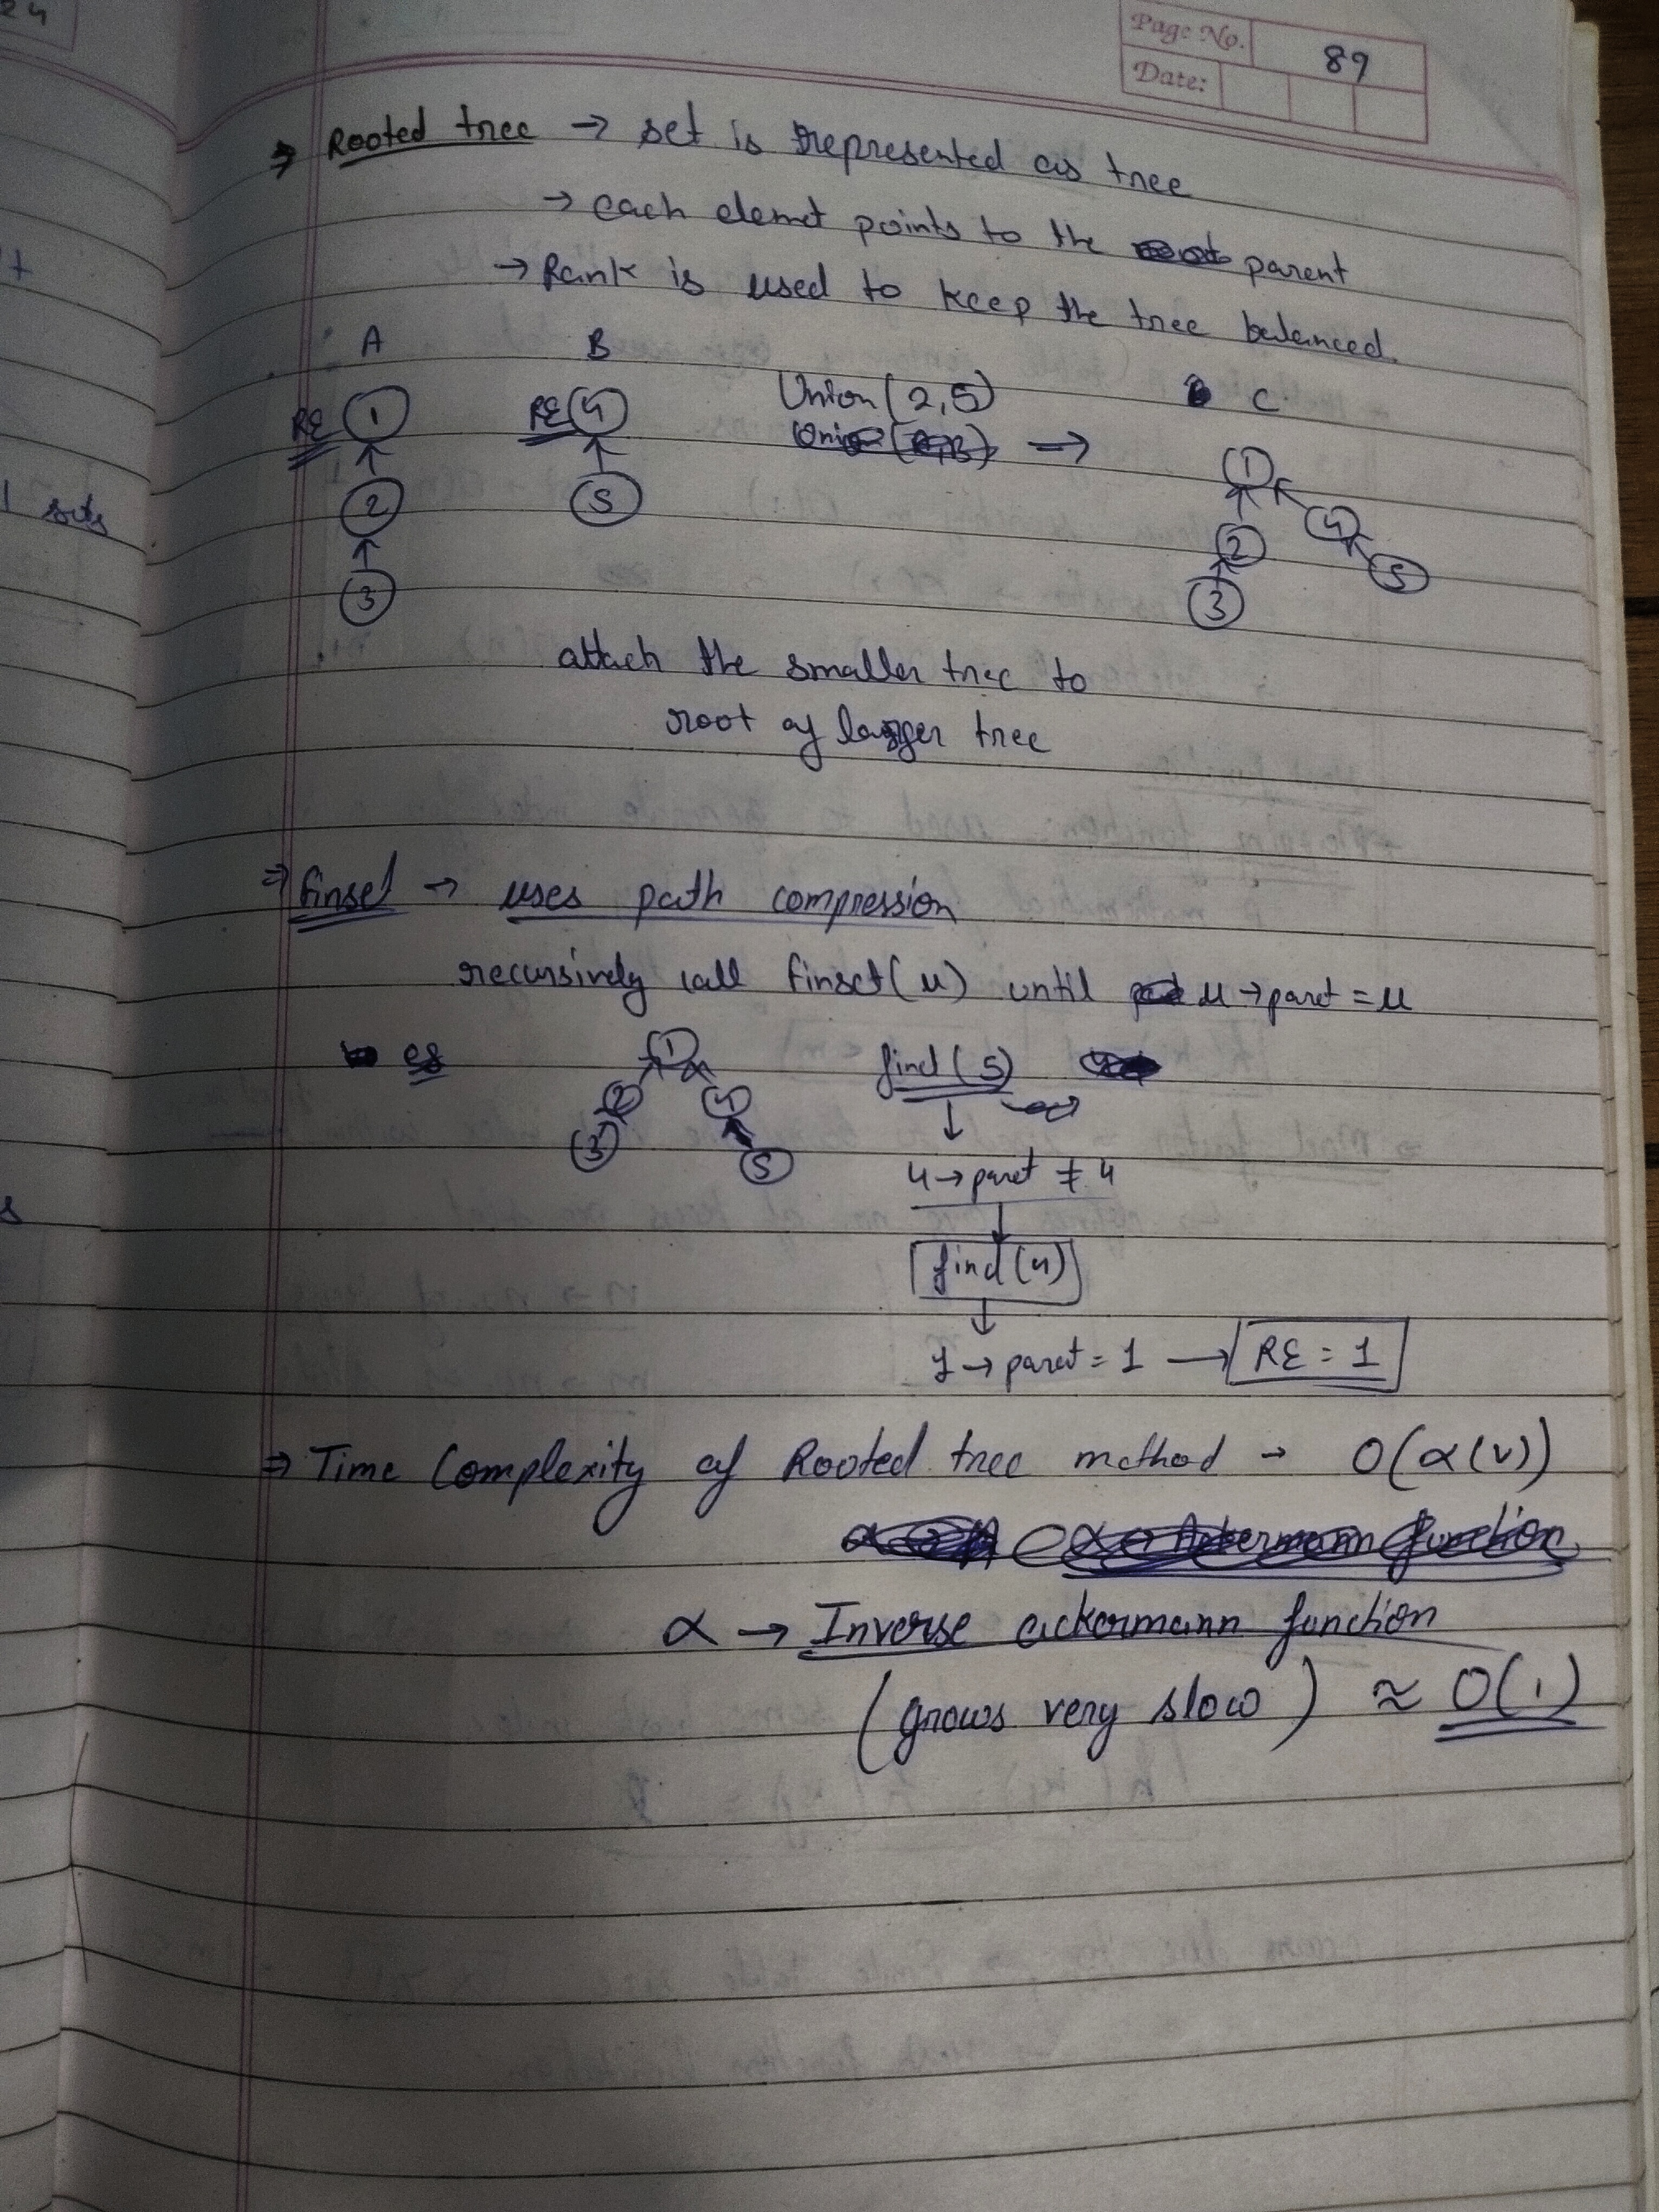 24
Page No. 89
Date:
⇒ Rooted tree → set is represented as tree
→ each elemet points to the parent
→ Rank is used to keep the tree balanced.
A B Union(2,5) C
RE 1 RE 4 →
2 5
3
1
4
2 5
3
attach the smaller tree to
root of larger tree
1 sets
⇒ finset → uses path compression
recursively call finset(u) until u→paret = u
eg 1 find(5)
2 4
3 5
4→paret ≠ 4
find(4)
1→paret = 1 → RE = 1
⇒ Time Complexity of Rooted tree method → O(α(v))
α → Inverse ackermann function
(grows very slow) ≈ O(1)